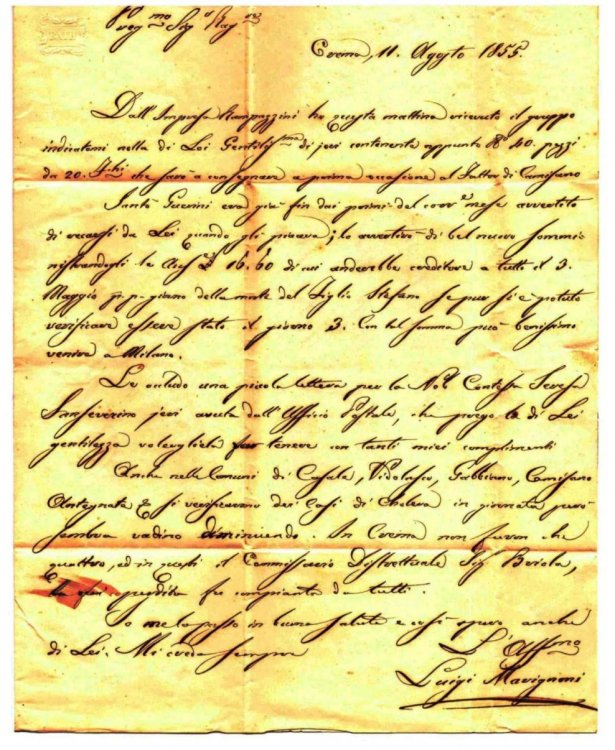 Preg.mo Sig.r Rag.re
Crema, 11. Agosto 1855.
Dall'Impresa Rampazzini ho questa mattina ricevuto il gruppo
indicatomi nella di Lei Gentilis.ma di jeri contenente appunto N° 40. pezzi
da 20. che sarà a consegnare a prima occasione al Fattor di Camisano
Santo Guerini era già fin dai primi del corr.e mese avvertito
di recarsi da Lei quando gli piaceva; lo avvertirò di bel nuovo sommi-
nistrandogli le 16.60 di cui anderebbe creditore a tutti il 3.
Maggio p.p. giorno della morte del Figlio Stefano se pur si è potuto
verificare essere stato il giorno 3. Con tal somma può benissimo
venire a Milano.
Le accludo una piccola lettera per la Nob. Contessa Teresa
Sanseverino jeri avuta dall'Uffizio Postale, che prego la di Lei
gentilezza volergliela far tenere con tanti miei complimenti
Anche nelle Comuni di Casale, Vidolasco, Gabbiano, Camisano
Antegnate si verificarono dei Casi di Cholera in giornata però
sembra vadino diminuendo. In Crema non furon che
quattro, ed in questi il Commissario Distrettuale Sig. Boriola,
la cui perdita fu compianta da tutti.
Io me la passo in buona salute e così spero anche
di Lei. Mi creda sempre
L'Aff.mo
Luigi Mavignoni